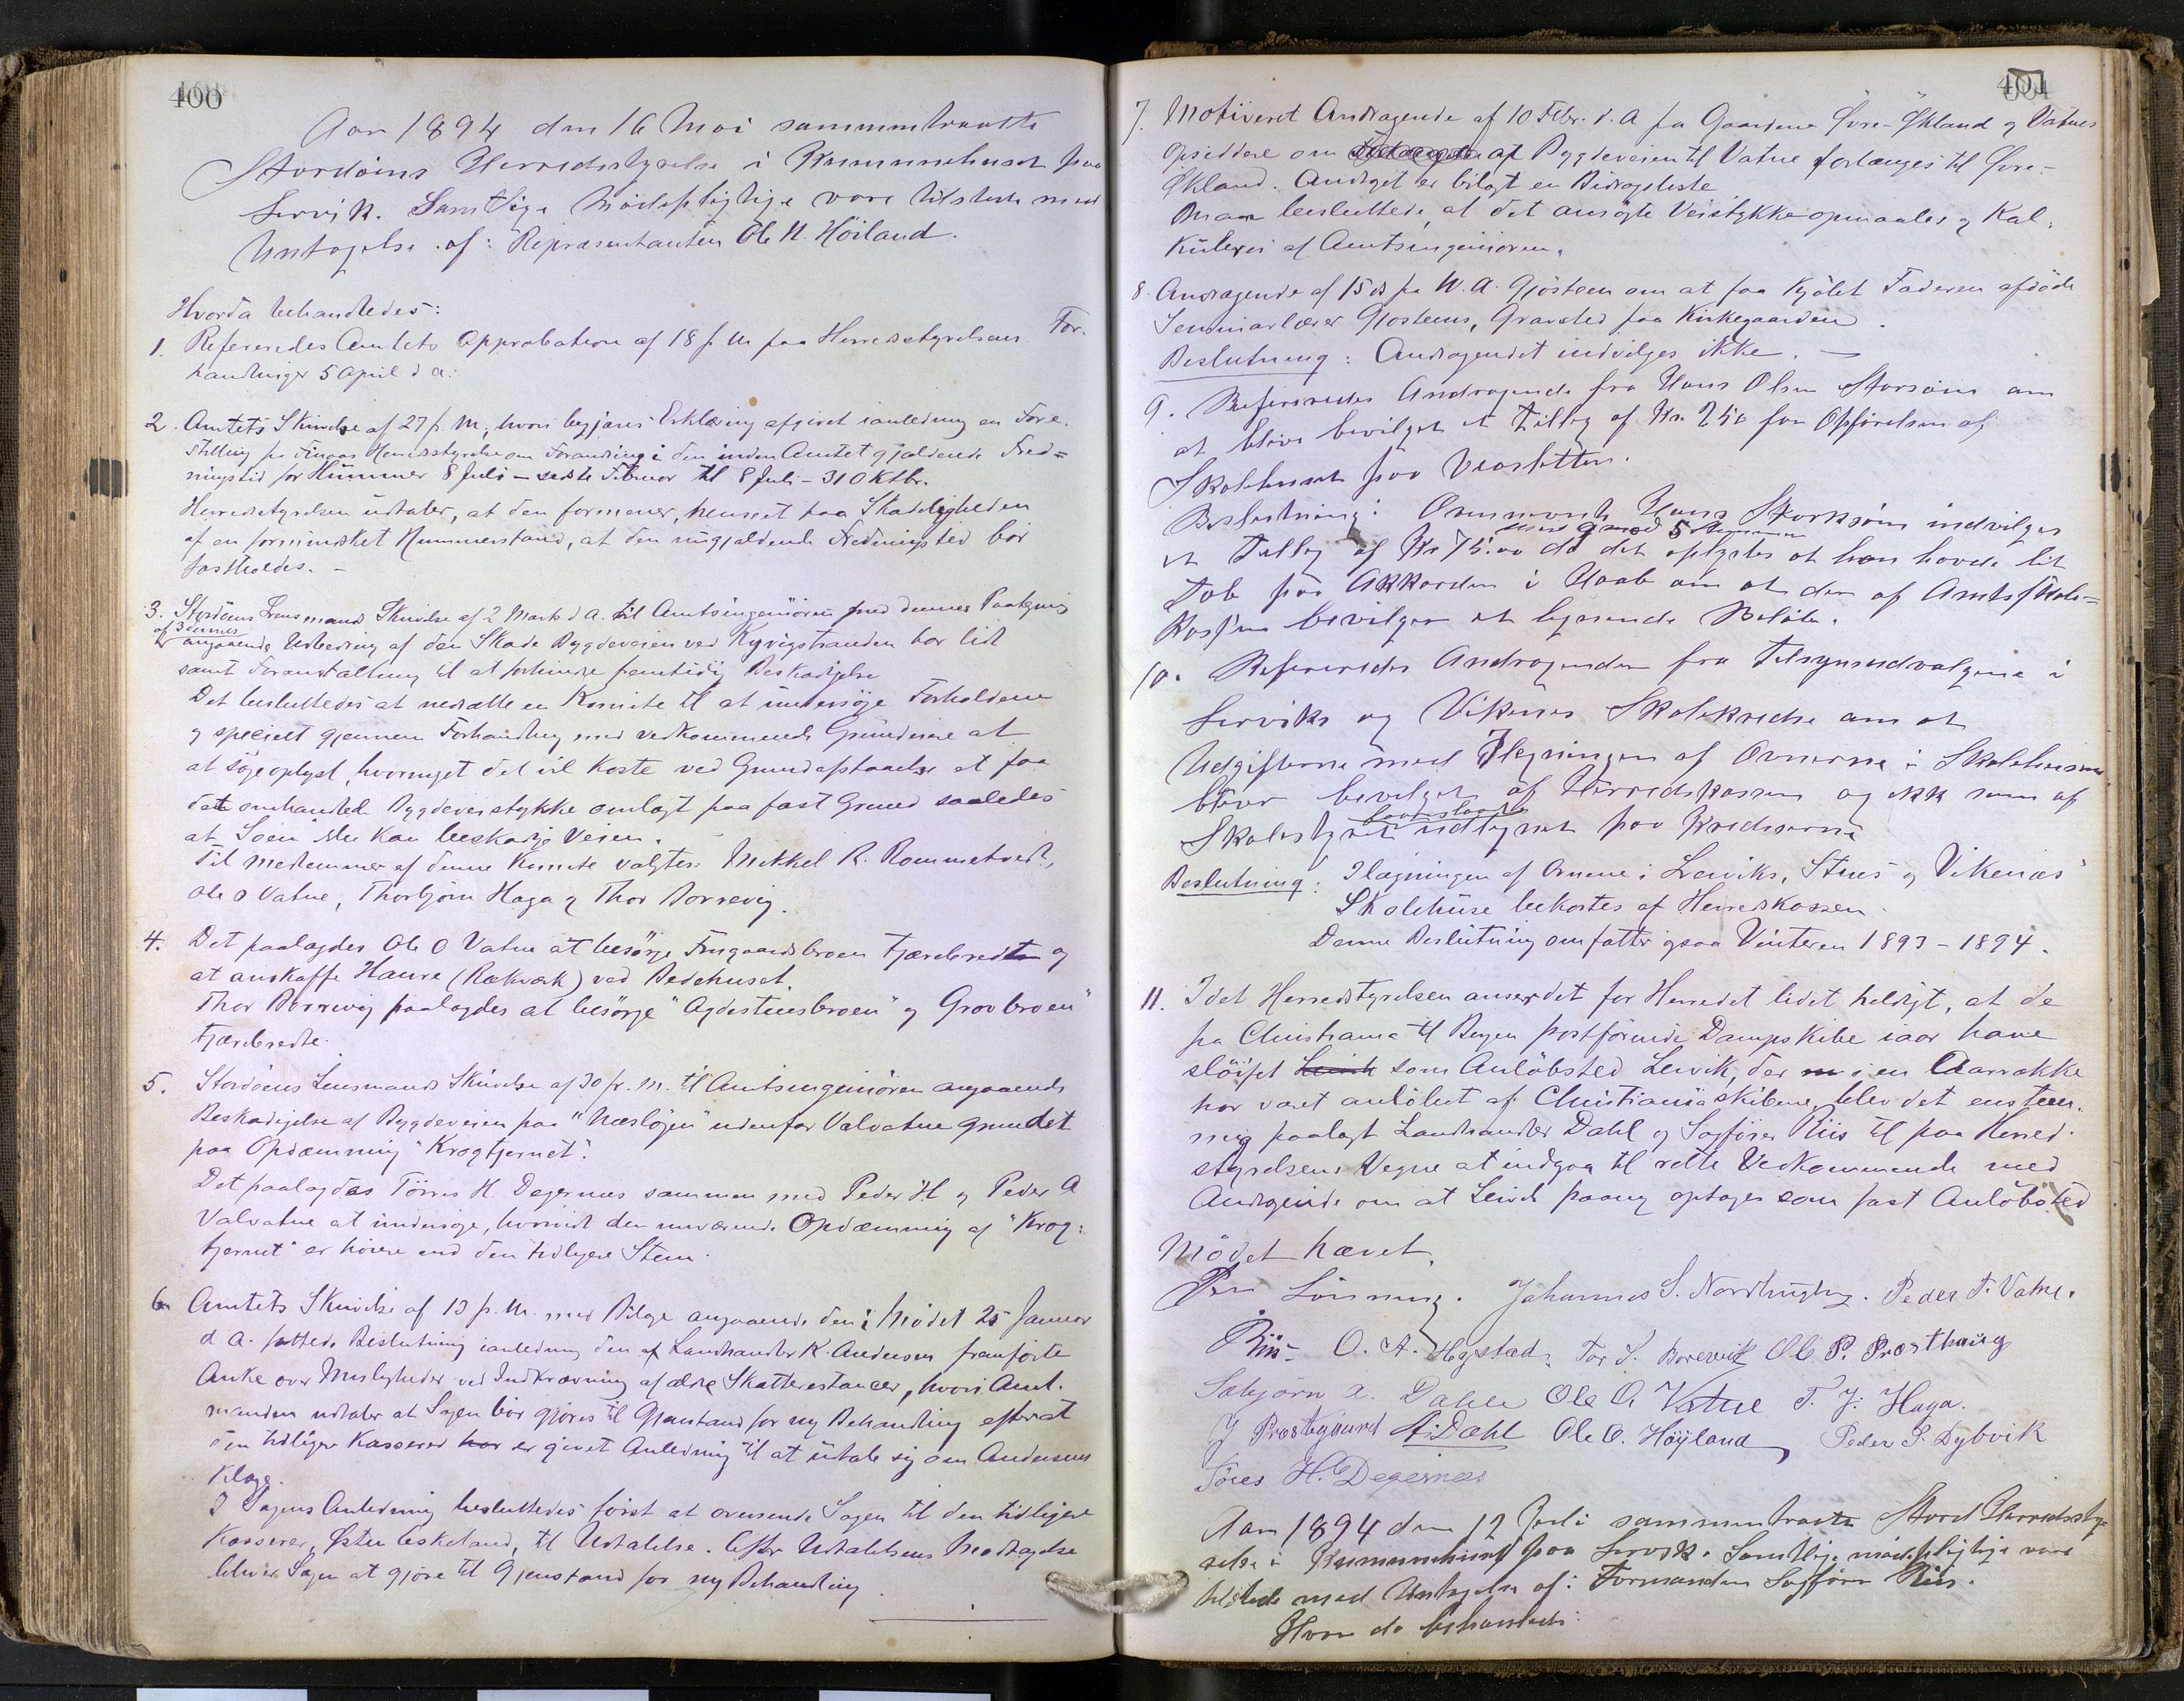 400
Aar 1894 den 16 Mai sammentraadte
Stordøens Herredsstyrelse i Kommunehuset paa
Lervik. Samtlige Mødepligtige vare tilstede med
Untagelse af: Repræsentanten Ole H. Höiland.
Hvorda behandledes:
1. Refereredes Amtets Approbation af 18 f. M. paa Herredsstyrelsens For-
handlinger 5 April d. A.
2. Amtets Skrivelse af 27 f. M., hvori begjæres Erklæring afgivet ianledning en Fore-
stilling fra Finaas Herredsstyrelse om Forandring i den inden Amtet gjældende Fred=
ningstid for Hummer 8 Juli – sidste Februar til 8 Juli – 31 Oktbr.
Herredsstyrelsen udtaler, at den formener, henseet paa Skadeligheden
af en forminsket Hummerstand, at den nugjældende Fredningstid bör
fastholdes. –
3. Stordöens Lensmands Skrivelse af 2 Marts d. A. til Amtsingeniören med dennes Paategning
af 3 dennes
angaaende Udbedring af den Skade Bygdeveien ved Kyvigstranden har lidt
samt Foranstaltning til at forhindre fremtidig Beskadigelse
Det besluttedes at nedsætte en Komite til at undersöge Forholdene
og specielt gjennem Forhandling med vedkommende Grundeiere at
at söge oplyst, hvormeget det vil koste ved Grundafstaaelse at faa
det omhandlede Bygdeveistykke omlagt paa fast Grund saaledes
at Söen ikke kan beskadige Veien.
Til Medlemmer af denne Komite valgtes: Mikkel R. Rommetvedt,
Ole O Vatne, Thorbjörn Haga og Thor Borrevig.
4. Det paalagdes Ole O Vatne at besörge Frugaardsbroen tjærebredt og
at anskaffe Haure (Rækværk) ved Bedehuset.
Thor Borrevig paalagdes at besörge "Agdesteinsbroen" og "Grovbroen"
tjærebredte.
5. Stordöens Lensmands Skrivelse af 30 fr. M. til Amtsingeniören angaaende
Beskadigelse af Bygdeveien paa "Næslögen" udenfor Valvatne grundet
paa Opdæmning "Krogtjernet".
Det paalagdes Törres H. Degernes sammen med Peder H og Peder A
Valvatne at undersöge, hvorvidt den nuværende Opdæmning af "Krog-
tjernet" er höiere end den tidligere Stem.
6. Amtets Skrivelse af 13 f. M. med Bilage angaaende den i Mödet 25 Januar
d. A. fattede Beslutning ianledning den af Landhandler K. Andersen fremförte
Anke over Misligheder ved Indkrævning af ældre Skatterestancer, hvori Amt-
manden udtaler at Sagen bör gjöres til Gjenstand for ny Behandling efterat
den tidligere Kasserer har er givet Anledning til at udtale sig om Andersens
Klage.
I Sagens Anledning besluttedes först at oversende Sagen til den tidligere
Kasserer, Østen Eskeland, til Udtalelse. Efter Udtalelsens Modtagelse
bliver Sagen at gjöre til Gjenstand for ny Behandling.
401
7. Motiveret Andragende af 10 Febr. d. A fra Gaardene Øvre-Økland og Vatnes
Opsiddere om at Bygdeveien til Vatne forlænges til Øvre-
Økland. Andraget er bilagt en Bidragsliste
Man besluttede, at det ansögte Veistykke opmaales og kal-
kuleres af Amtsingeniören.
8. Andragende af 15 ds fra W. A. Gjöstein om at faa kjöbt Faderen afdöde
Seminarlærer Gjösteins, Gravsted paa Kirkegaarden.
Beslutning: Andragendet indvilges ikke. –
9. Refereredes Andragende fra Hans Olsen Storsöen om
at blive bevilget et Tillæg af Kr. 250 for Opförelsen af
Skolehuset paa Vearsletten.
Beslutning: Ovennævnte Hans Storksöen indvilges
med 9 mod 5 Stemmer
et Tillæg af Kr 75.00 da det oplystes at han havde lit
Tab paa Akkorden i Haab om at der af Amtsskole-
kassen bevilges et lignende Belöb.
10. Refereredes Andragender fra Tilsynsudvalgene i
Lerviks og Vikenes Skolekredse om at
Udgifterne med Ilægningen af Ovnerne i Skolehusene
bliver bevilget af Herredskassen og ikke som af
Skolestyret udlignet paa Kredserne
Beslutning: Ilægningen af Ovnene i Lerviks, Stues og Vikenæs
Skolehuse bekostes af Herredskassen.
Denne Beslutning omfatter ogsaa Vinteren 1893 – 1894.
11. Idet Herredsstyrelsen anser det for Herredet lidet heldigt, at de
fra Christiania til Bergen postförende Dampskibe iaar have
slöifet Leirvik som Anlöbsted Leivik, der i en Aarrække
har været anlöbet af Christianiaskibene, blev det enstem-
mig paalagt Landhandler Dahl og Sagförer Riis til paa Herred-
styrelsens Vegne at indgaa til rette Vedkommende med
Andragende om at Leivik paany optages som fast Anlöbsted
Mödet hævet.
Per Lönning. Johannes S. Nordhuglog. Peder T. Vatne.
Riis O. A. Hystad. Tor S. Borevik Ole P. Præsthaug
Sæbjörn A. Dahle Ole O. Vatne T. J. Haga.
J Præstegaard A. Dahl Ole O. Høyland, Peder P. Dybvik
Töres H. Degernæs
Aar 1894 den 12 Juli sammentraadte Stord Herredssty-
relse i Kommunehuset paa Lervik. Samtlige mødepligtige vare
tilstede med Untagelse af: Formanden Sagfører Riis.
Hvor da behandledes: